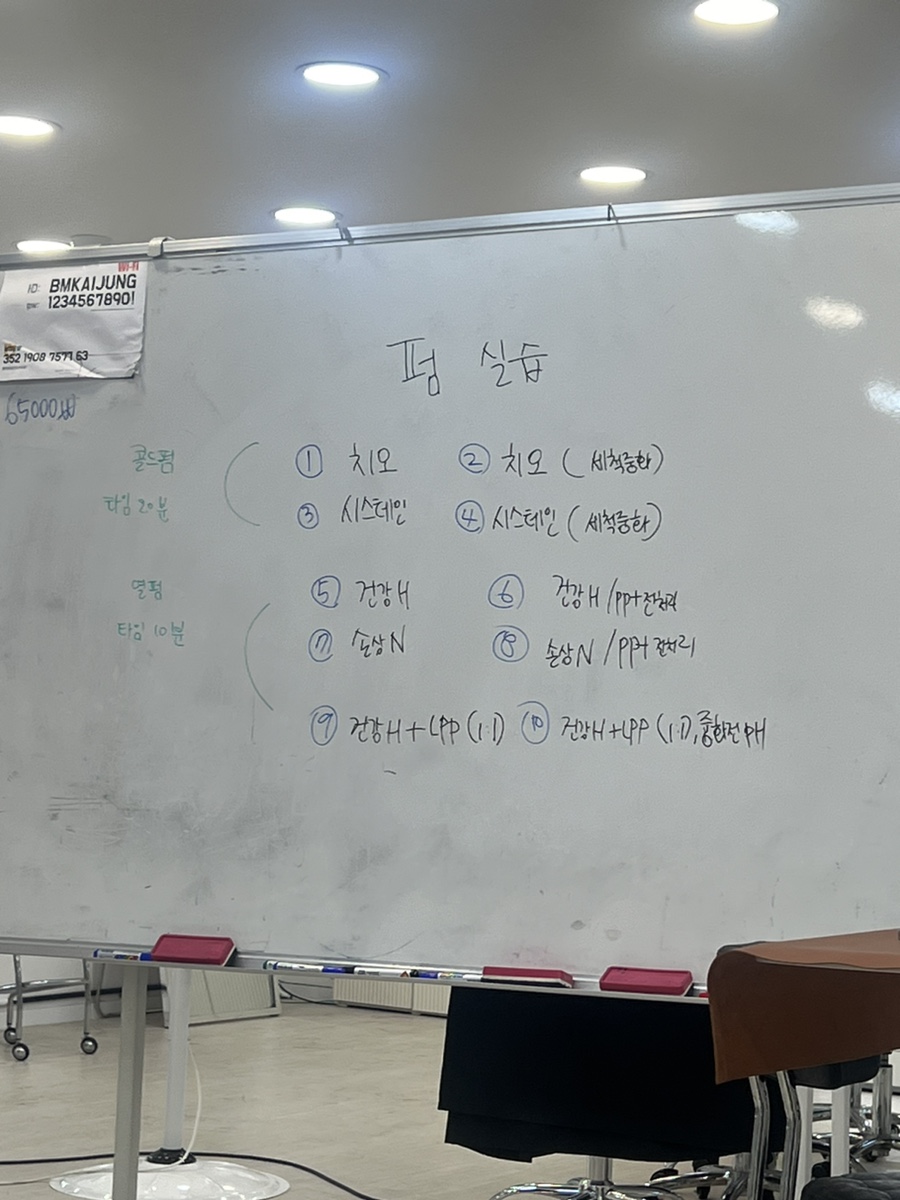 Wi-Fi
ID: BMKAIJUNG
PW: 1234567890!
352 1908 7577 63
65000₩
펌 실습
콜드펌
타임 20분
① 치오 ② 치오 (세척중화)
③ 시스테인 ④ 시스테인 (세척중화)
열펌
타임 10분
⑤ 건강H ⑥ 건강H/PP+전처리
⑦ 손상N ⑧ 손상N/PP+전처리
⑨ 건강H+LPP (1:1) ⑩ 건강H+LPP (1:1), 중화전 PH